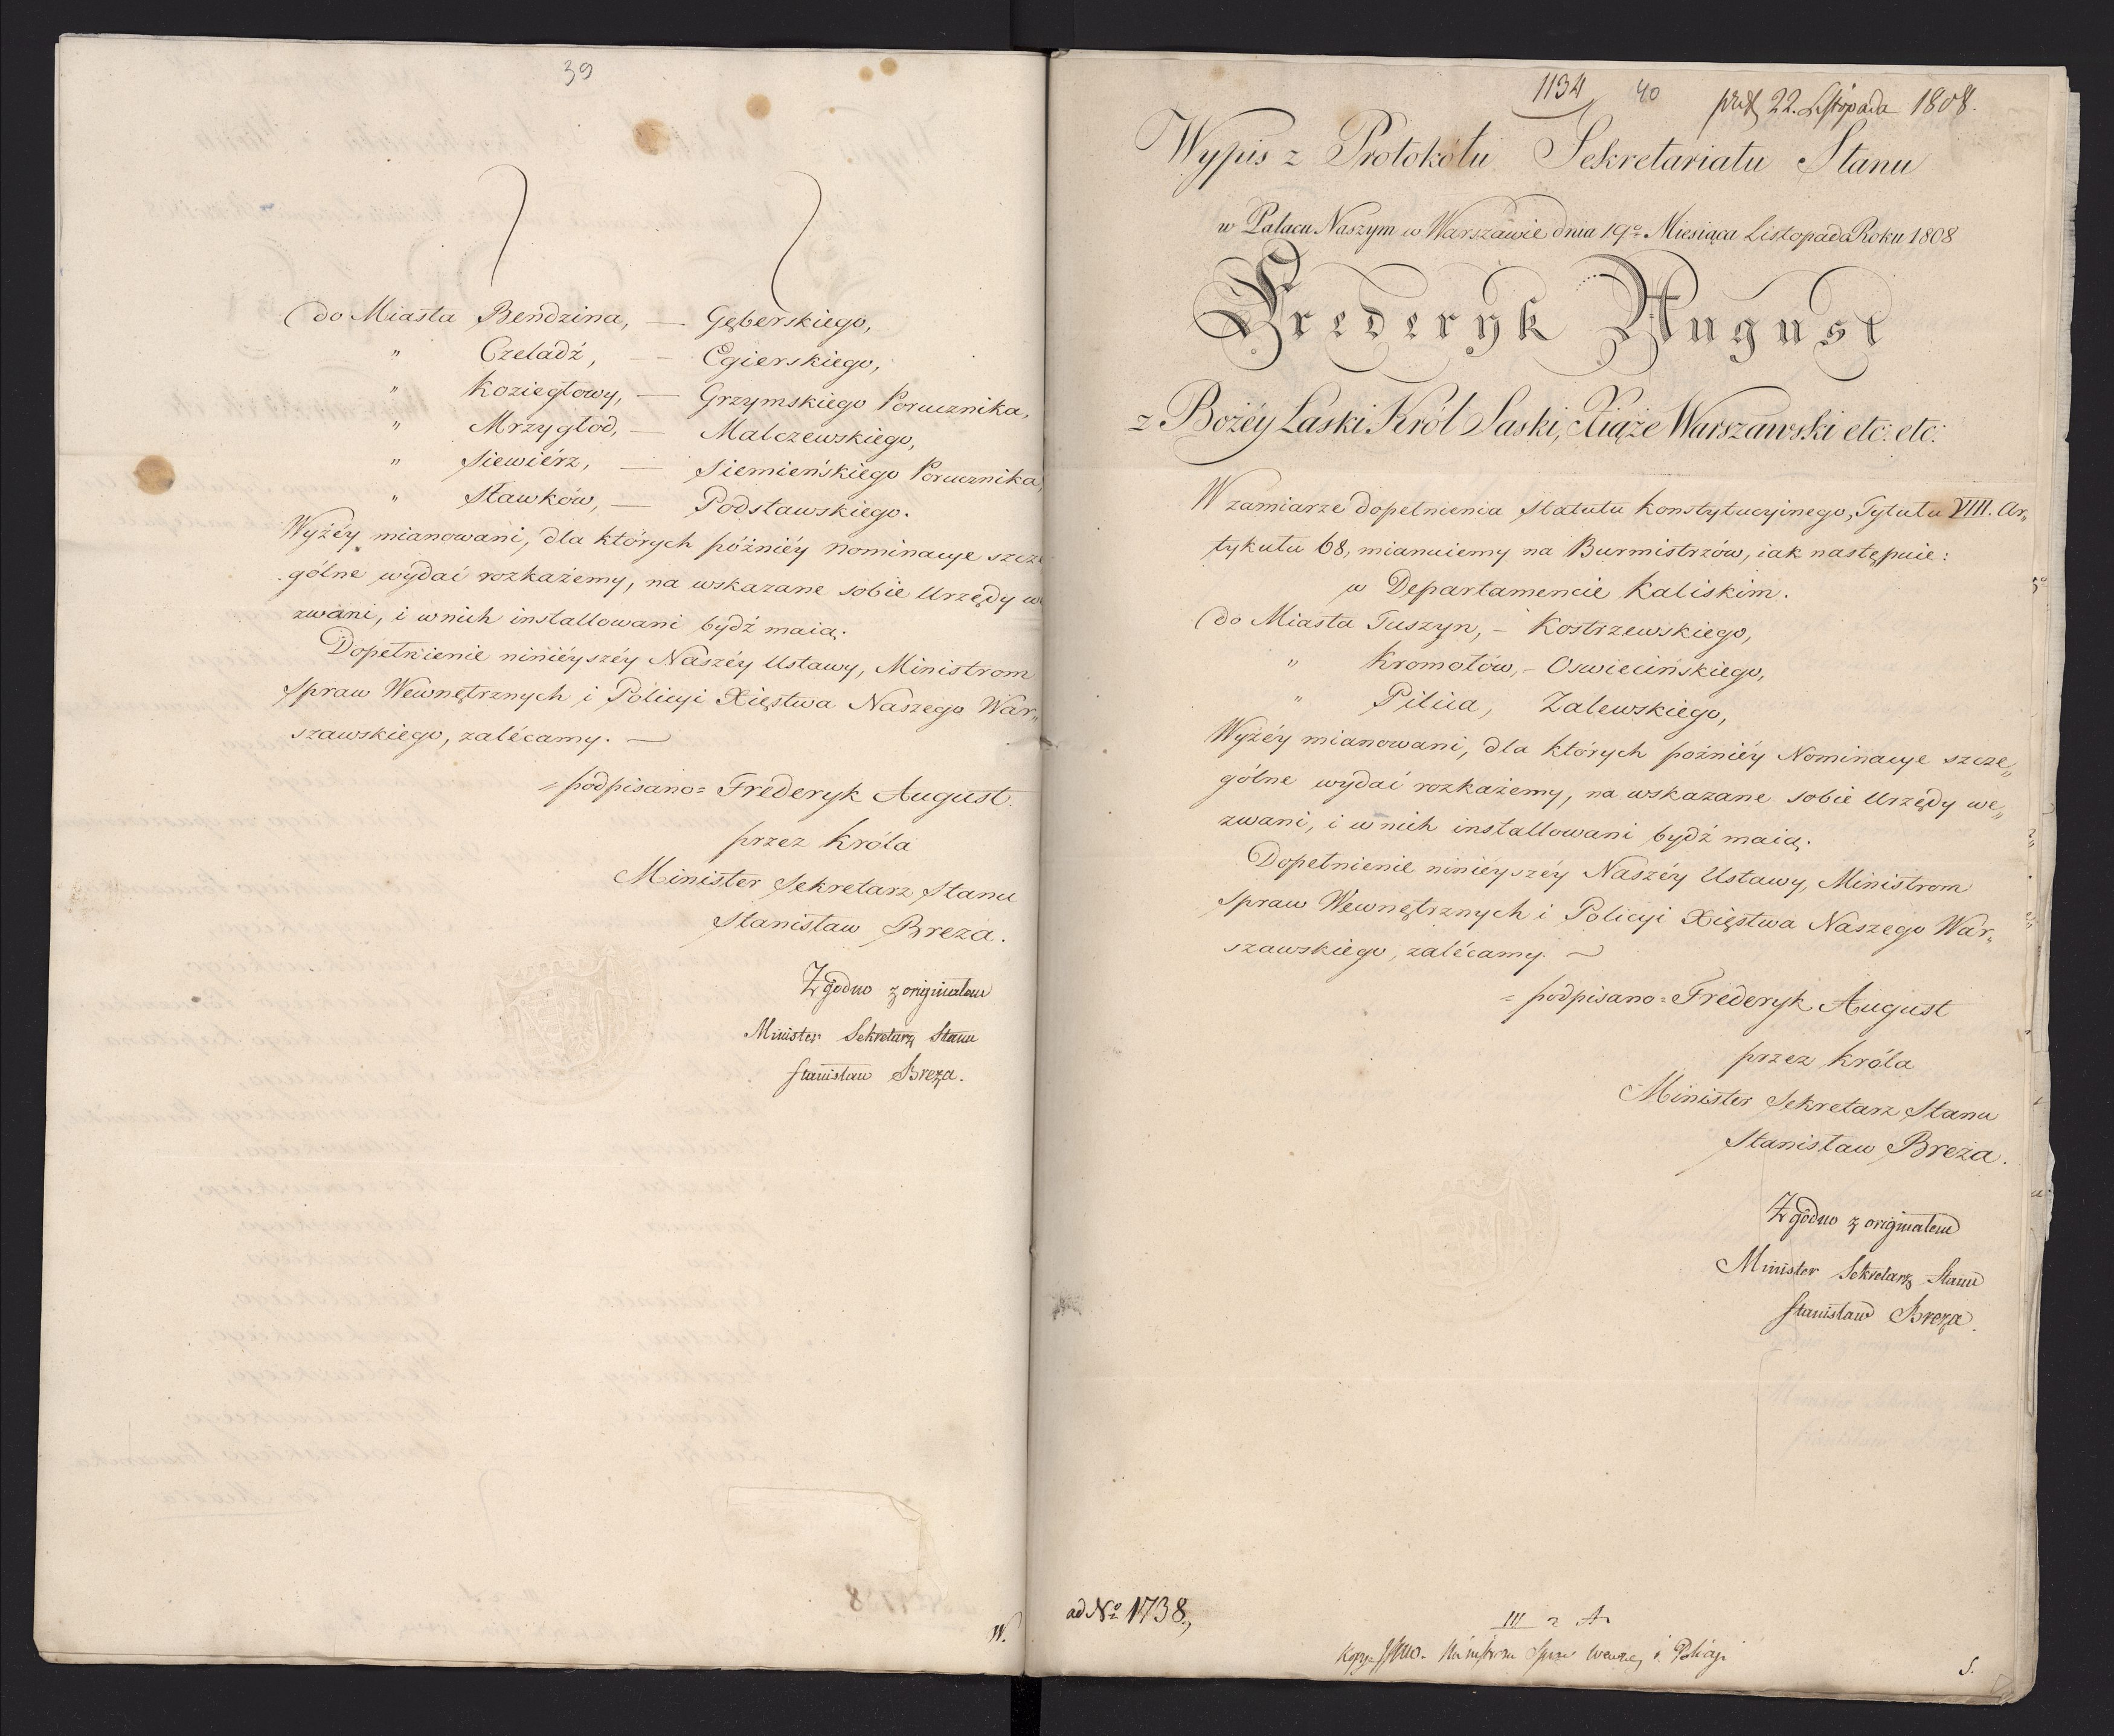 39
do Miasta Bendzina, — Gęberskiego,
" Czeladź, — Egierskiego,
" Koziegłowy, — Grzymskiego Porucznika,
" Mrzygłód, — Malczewskiego,
" Siewiérz, — Siemieńskiego Porucznika,
" Sławków, — Podstawskiego.
Wyżéy mianowani, dla których późniéy nominacye szcze
gólne wydać rozkażemy, na wskazane sobie Urzędy we
zwani, i w nich installowani bydź maią.
Dopełnienie ninieyszéy Naszéy Ustawy, Ministrom
Spraw Wewnętrznych i Policyi Xięstwa Naszego War„
szawskiego, zalécamy. —
= podpisano = Frederyk August.
przez Króla
Minister Sekretarz Stanu
Stanisław Breza.
Zgodno z originałem
Minister Sekretarz Stanu
Stanisław Breza.
W.
1134 40 22. Listopada 1808.
Wypis z Protokółu Sekretariatu Stanu
w Pałacu Naszym w Warszawie dnia 19º Miesiąca Listopada Roku 1808
Frederyk August
z Bożéy Łaski Król Saski, Xiąże Warszawski etc: etc:
W zamiarze dopełnienia Statutu Konstytucyinego, Tytułu VIII. Ar„
tykułu 68, mianuiemy na Burmistrzów, iak następuie:
w Departamencie Kaliskim.
do Miasta Tuszyn, – Kostrzewskiego,
" Kromołów, – Oswiecińskiego,
" Pilica, Zalewskiego,
Wyżéy mianowani, dla których poźniéy Nominacye szcze„
gólne wydać rozkażemy, na wskazane sobie Urzędy we„
zwani, i w nich installowani bydź maią.
Dopełnienie ninieyszéy Naszéy Ustawy, Ministrom
Spraw Wewnętrznych i Policyi Xięstwa Naszego War„
szawskiego, zalécamy. —
= podpisano = Frederyk August
przez Króla
Minister Sekretarz Stanu
Stanisław Breza.
Zgodno z originałem
Minister Sekretarz Stanu
Stanisław Breza.
ad Nº 1738.,
III
i Policyi
S.